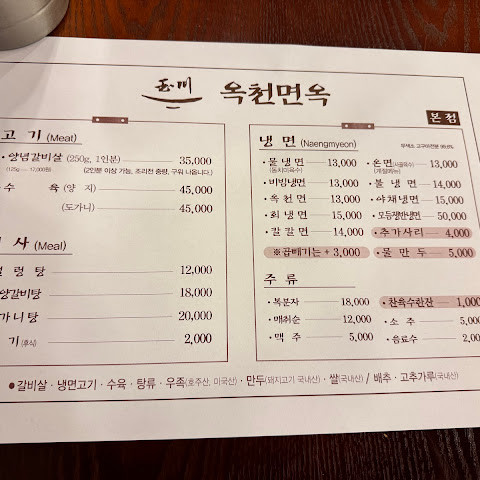 玉川 옥천면옥
본점
고 기 (Meat)
• 양념갈비살 (250g, 1인분) 35,000
(125g — 17,000원) (2인분 이상 가능, 조리전 중량, 구워 나옵니다.)
수 육 (양 지) 45,000
(도가니) 45,000
사 (Meal)
렁 탕 12,000
양갈비탕 18,000
가니탕 20,000
기 (후식) 2,000
냉 면 (Naengmyeon)
• 물 냉 면 13,000
(동치미육수)
• 비빙냉면 13,000
• 옥 천 면 13,000
• 회 냉 면 15,000
• 갈 갈 면 14,000
※곱빼기는 + 3,000
• 온 면 (사골육수) 13,000
(계절메뉴)
• 불 냉 면 14,000
• 야채냉면 15,000
• 모듬쟁반냉면 50,000
• 추가사리 4,000
• 물 만 두 5,000
주 류
• 복분자 18,000
• 매취순 12,000
• 맥 주 5,000
• 찬육수한잔 1,000
• 소 주 5,000
• 음료수 2,00
● 갈비살 · 냉면고기 · 수육 · 탕류 · 우족(호주산, 미국산) · 만두(돼지고기 국내산) · 쌀(국내산) / 배추 · 고추가루(국내산)